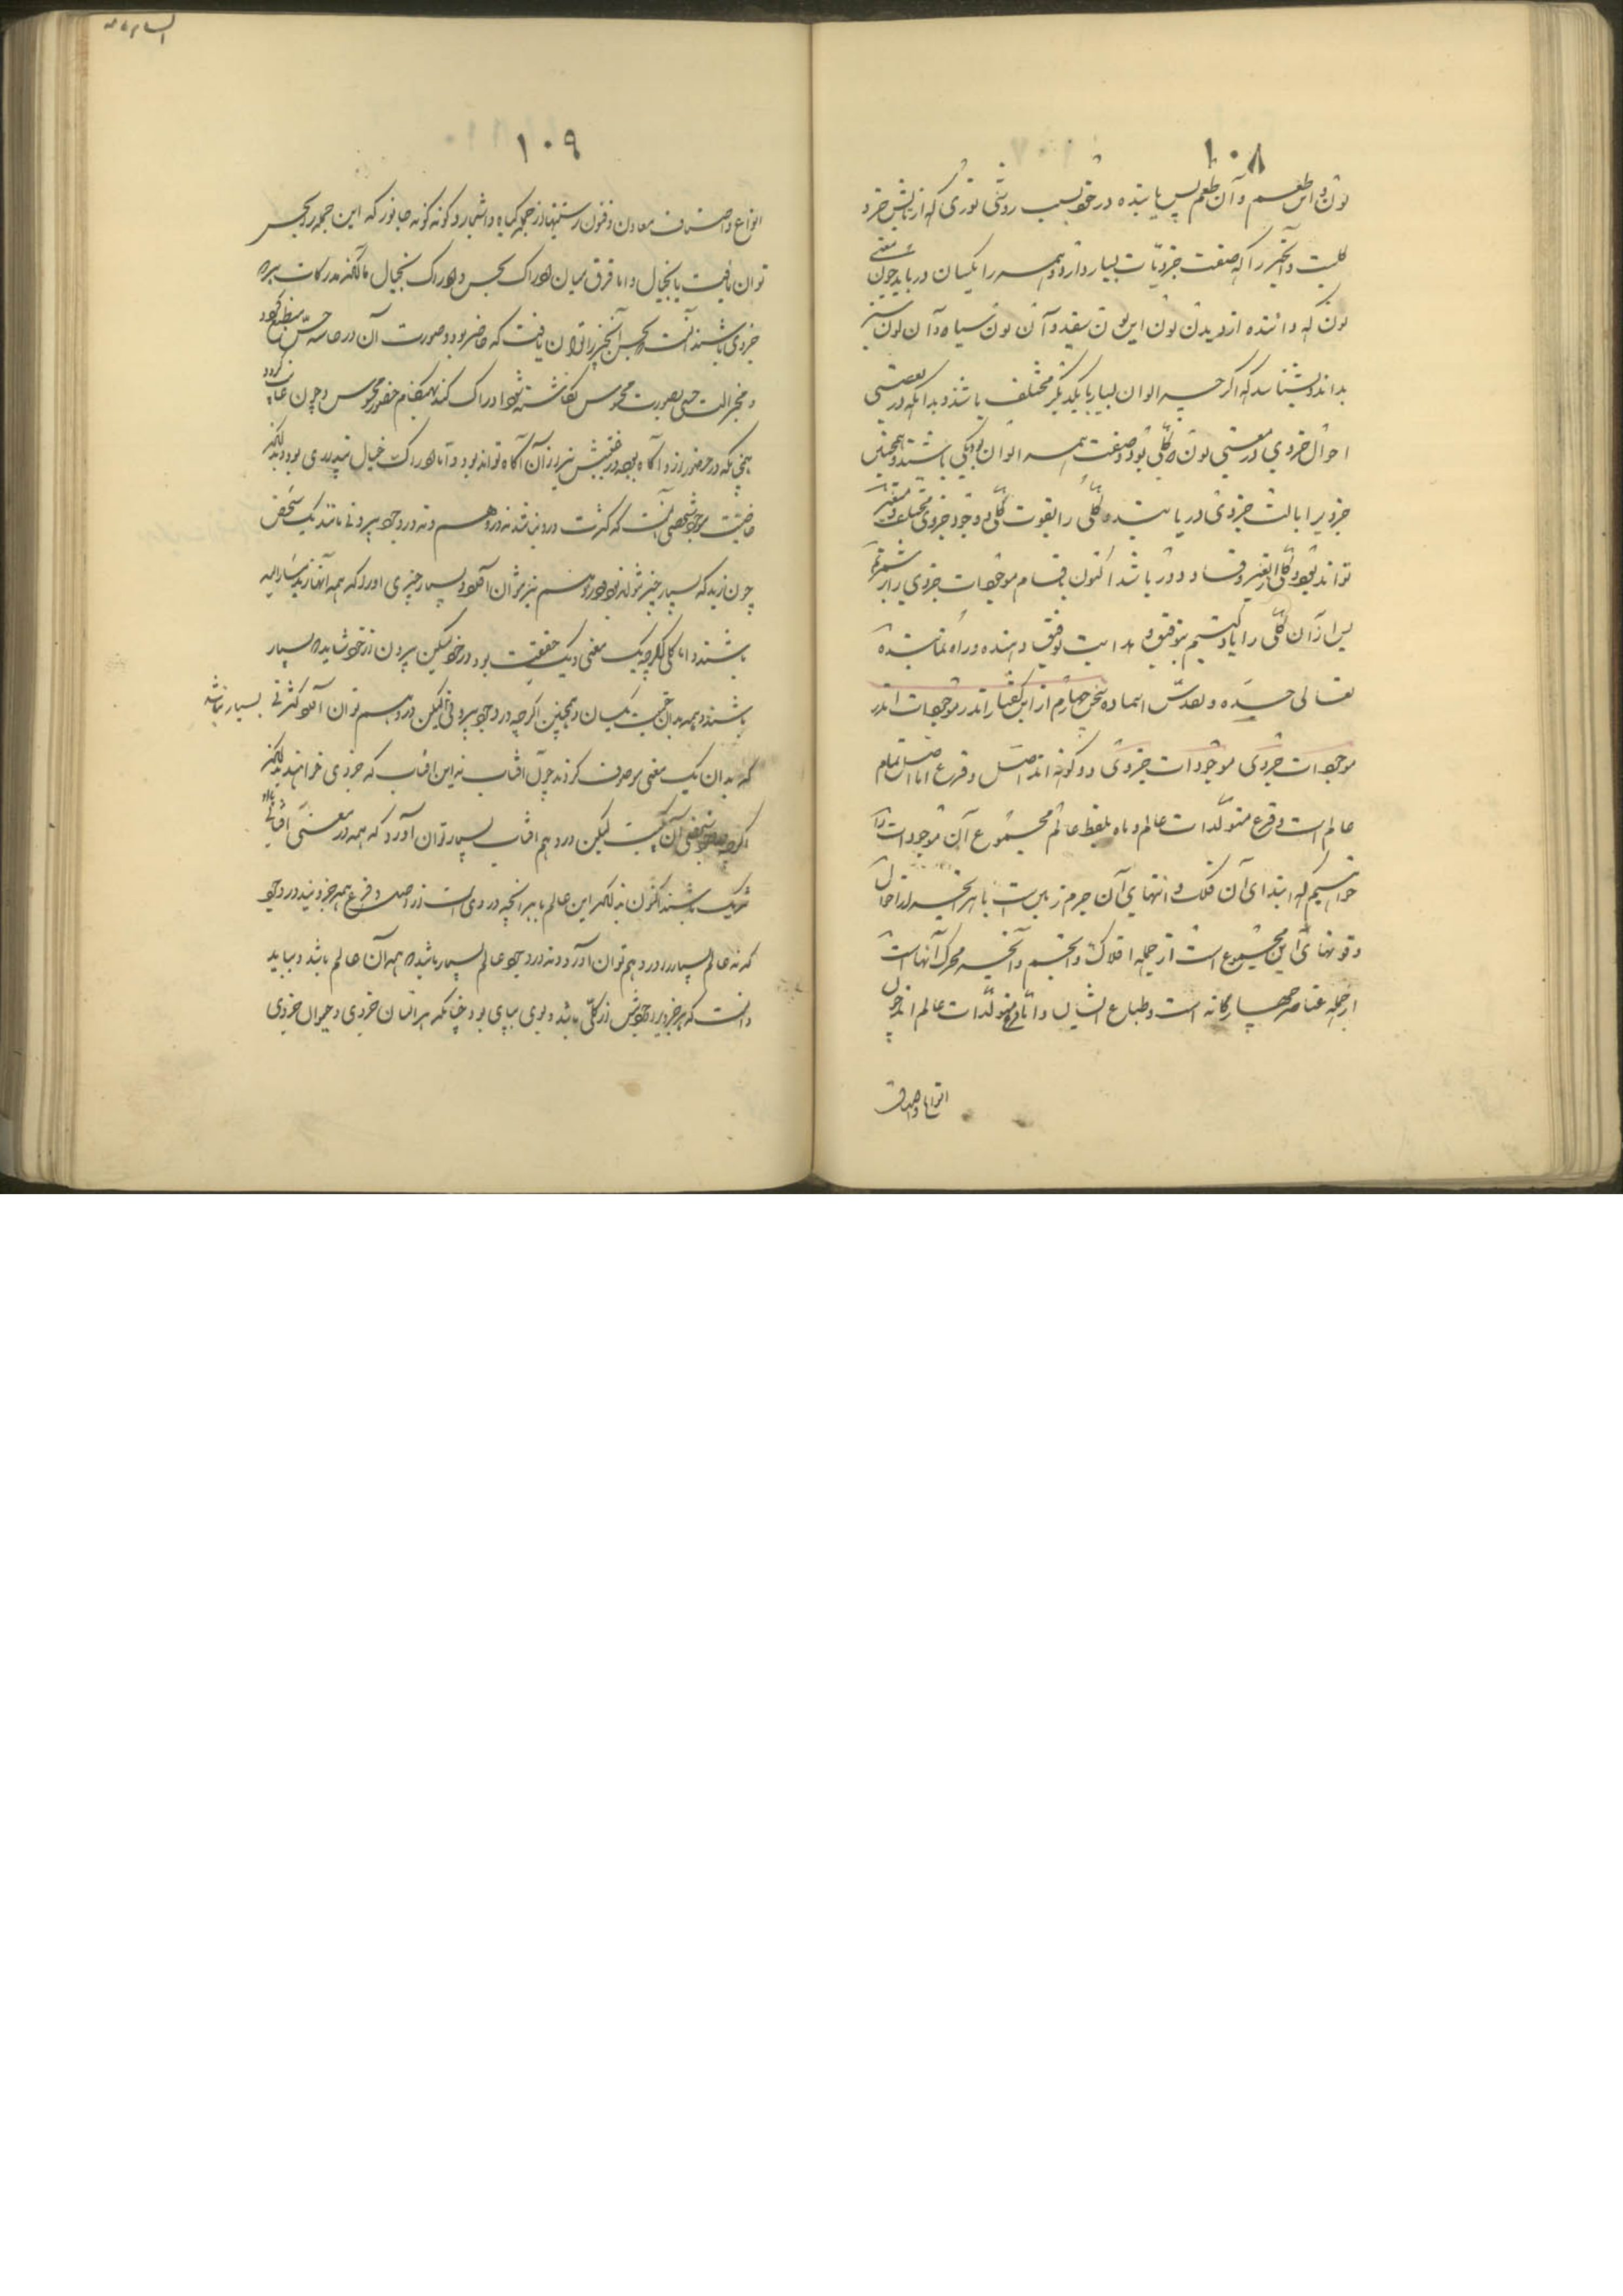 ۱۰۸
لون و این طعم و آن طعم پس یابنده در خود بسبب روشنی نوری که از تابش خرد
کلیت و آنچیز را که صفت جزویات بسیار دارد و همه را یکسان دریابد چون معنی
لون که داننده از دیدن لون این لون سفید و آن لون سیاه و آن لون سبز
بداند و بشناسد که اگر چه الوان بسیار با یکدیگر مختلف باشند و بدانکه در بعضی
احوال جزوی در معنی لون که کلی بود و صفت همه الوان بود یکی باشند و همچنین
جزویرا بالت جزوی دریابنده کلی را بقوت کلی و وجود جزوی مختلف و متغیر
تواند بود و کلی از تغیر و فساد دور باشد اکنون اقسام موجودات جزوی را بر شمریم
پس از آن کلی را یاد کنیم بتوفیق و هدایت توفیق دهنده و راه نماینده
تعالی جده و تقدس اسماءه سخن چهارم از این گفتار اندر موجودات اندر
موجودات جزوی موجودات جزوی دو گونه اند اصل و فرع اما اصل تمام
عالم است و فرع متولدات عالم و ما بلفظ عالم مجموع آن موجودات را
خواهیم که ابتدای آن فلک و انتهای آن جرم زمین است با هر چه از احوال
و قوتهای این مجموع است از جمله افلاک و انجم و آنچه محرک آنهاست
از جمله عناصر چهارگانه است و طباع ایشان و اما فرع متولدات عالم اند چون
انواع و اصناف
۱۰۹
انواع و اصناف معادن و فنون رستنیها از جمله گیاه و اشجار و گونه گونه جانور که این جمله را بحس
توان یافت یا بخیال و اما فرق میان ادراک بحس و ادراک بخیال با آنکه مدرکات هر دو
جزوی باشند آنست که بحس آنچیز را توان یافت که حاضر بود و صورت آن در حاسه حس منطبع گردد
و بجز الت حس بصورت محسوس نگاشته شود ادراک نکند بهنگام حضور محسوس و چون غایب گردد
همچنانکه در حضور از او آگاه بود در غیبتش نیز از آن آگاه تواند بود و اما ادراک خیال
خاصیت موجود شخصی آنست که کثرت در و نباشد نه در وهم و نه در وجود بیرونی مانند یک شخص
چون زید که بسیار چیز نتواند بود و در وهم نیز نتوان آورد بسیار چیزی آورد که همه آنها زید
باشند و اما کلی اگر چه یک معنی و یک حقیقت بود در خود لیکن بیرون از خود شاید که بسیار
باشند و همه بدان حقیقت یکسان و همچنین اگر چه در وجود بیرونی لیکن در وهم توان آورد کثرتی بسیار نباشد
که بدان یک معنی موصوف گردند چون آفتاب نه این آفتاب که جزوی خوانند
اگر چه در وجود شخصی آن یکیست لیکن در وهم آفتاب بسیار توان آورد که همه در معنی آفتابی با او
شریک باشند اکنون بدانکه این عالم با هر آنچه در وی است از اصل و فرع همه جزویند در وجود
که نه عالم بسیار را در وهم توان آورد و نه در وجود عالم بسیار باشد که همه آن عالم باشد و بباید
دانست که هر جزویرا وجودش از کلی باشد و بوی بپای بود چنانکه هر انسان جزوی و حیوان جزوی